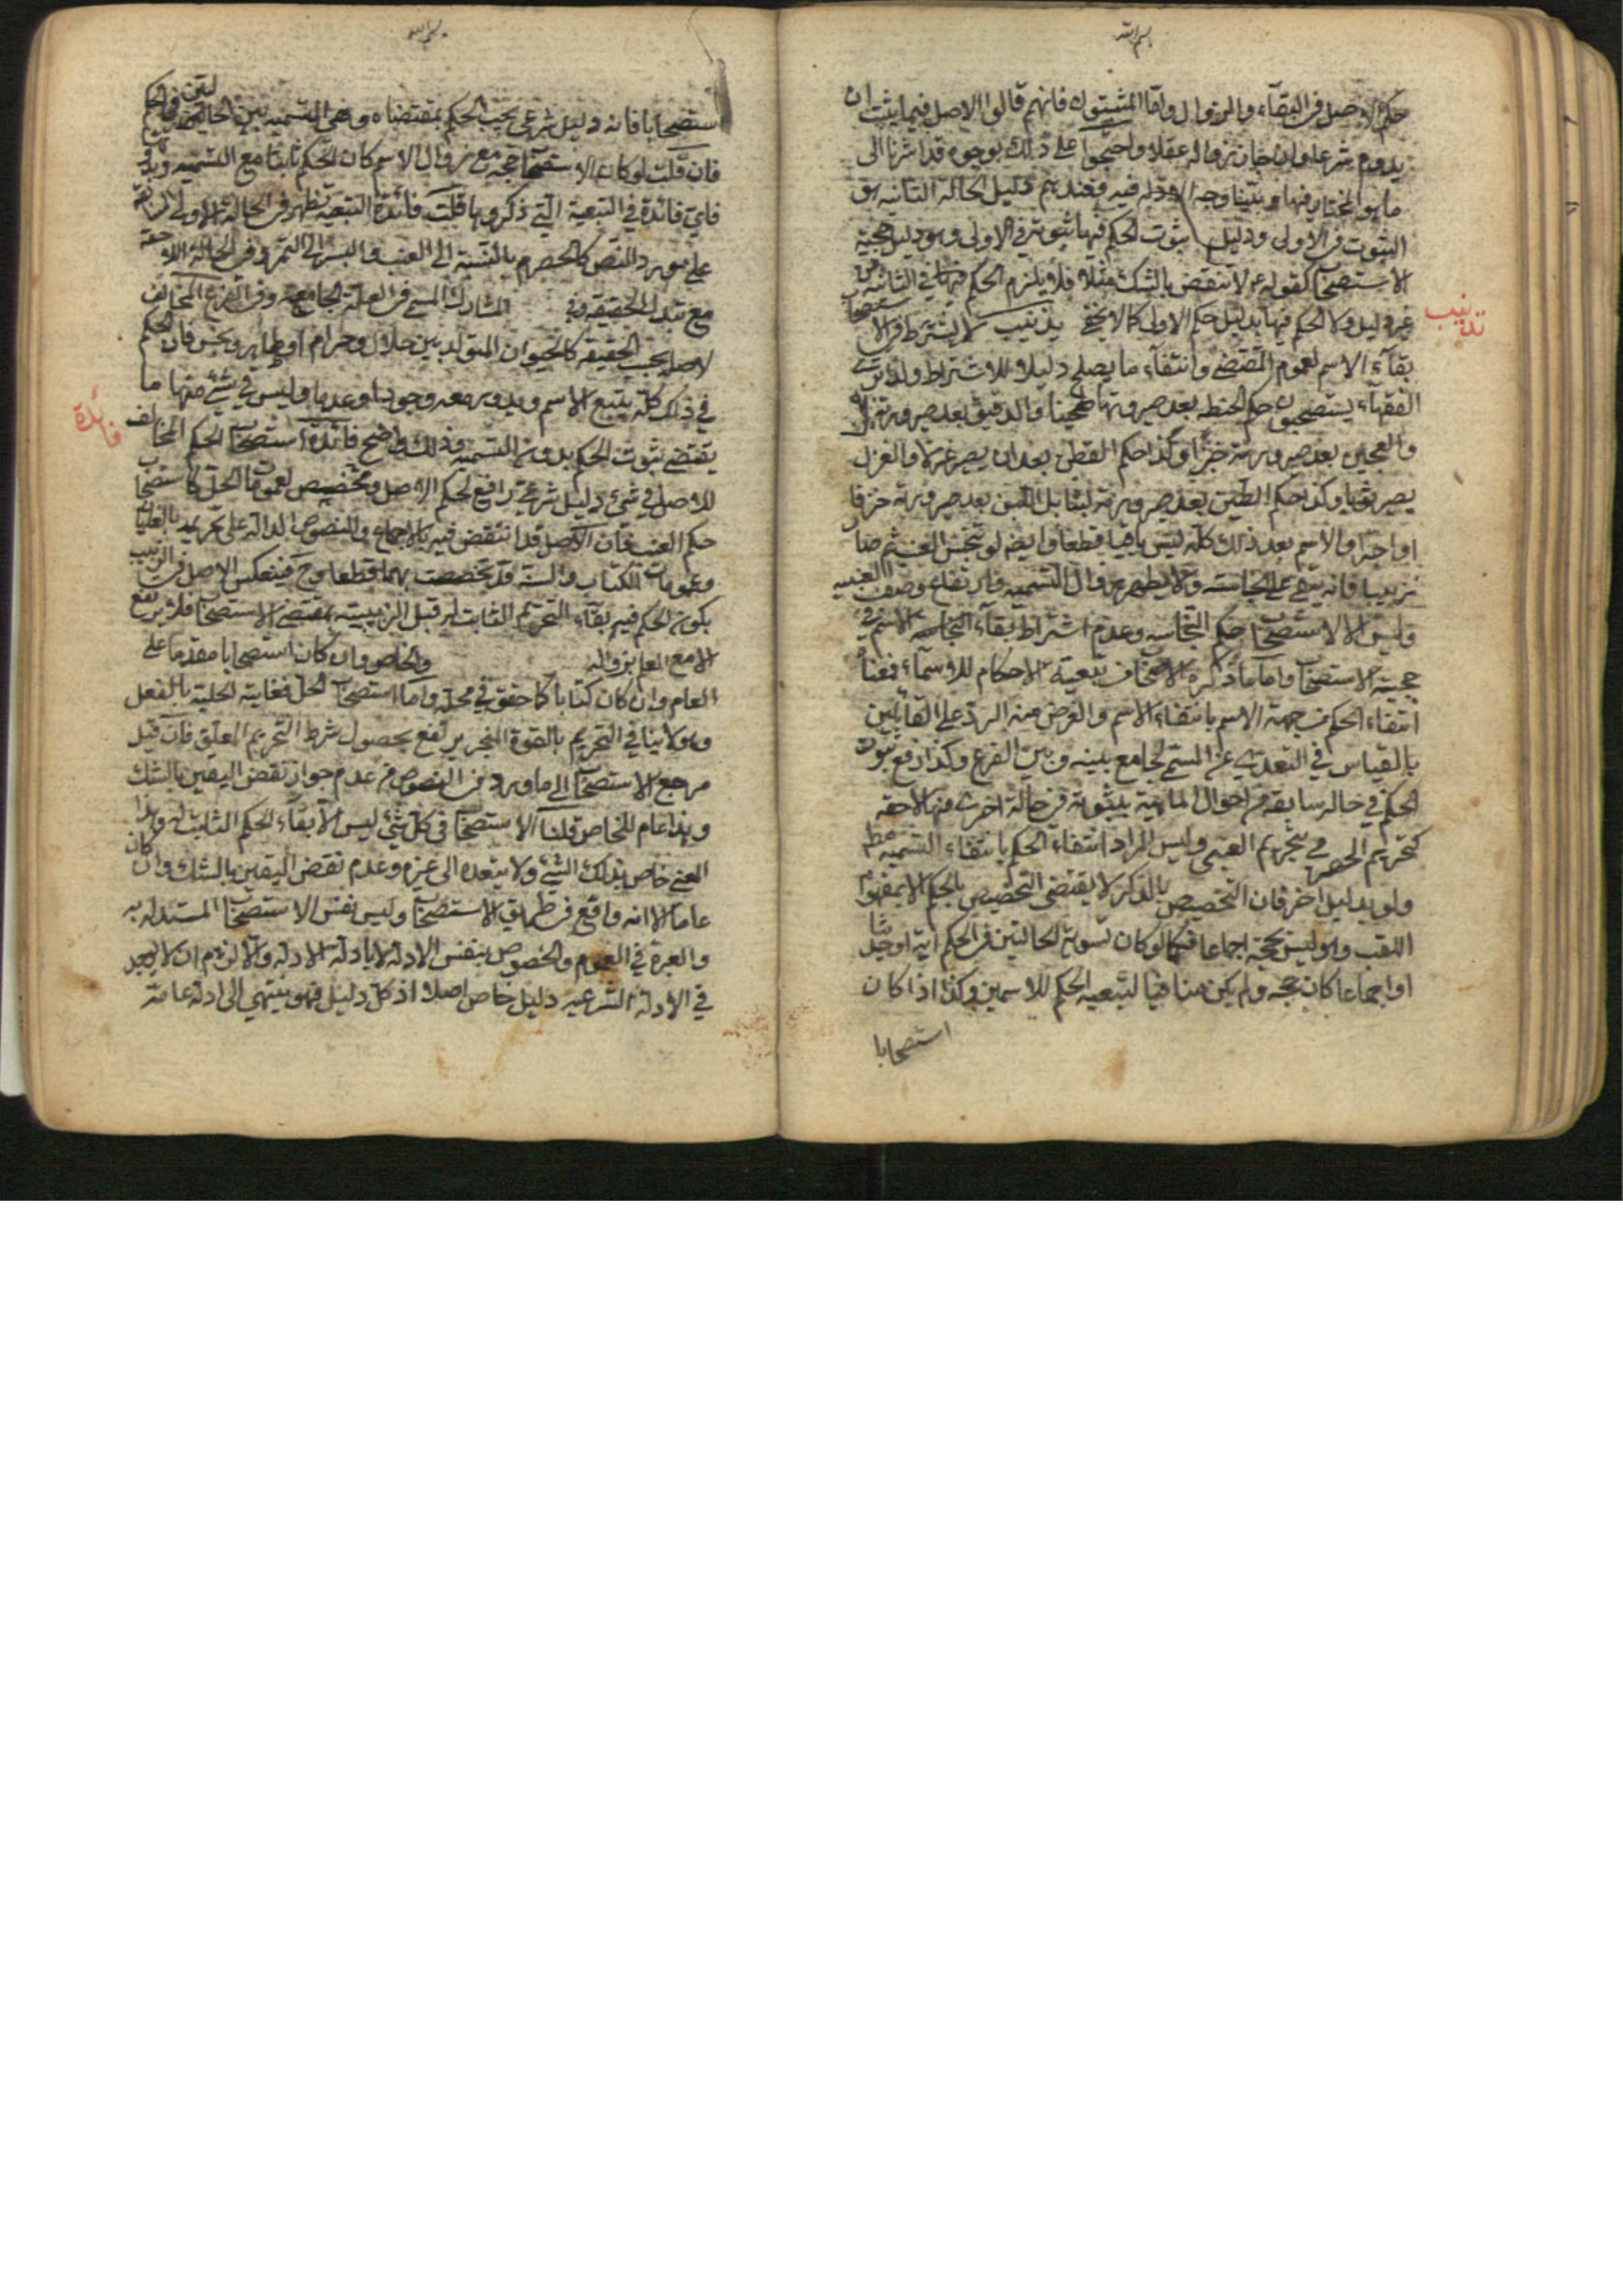 بسم الله
حكم الاصل فى البقاء والزوال واما المثبتون فانهم قالوا الاصل فيما يثبت ان
يدوم شرعا وان جاز زواله عقلا واحتجوا على ذلك بوجوه قد اشرنا الى
ما هو المختار فيها وبيّنا وجه الادلة فيه فعندهم دليل الحالة الثانية هو
الثبوت فى الاولى ودليل ثبوت الحكم فيها ثبوته فى الاولى وهو دليل حجية
الاستصحاب كقوله ع لا تنقض بالشك مثلا فلا يلزم الحكم فيها فى الثانية من
غير دليل ولا الحكم فيها بدليل حكم الاولى كما لا يخفى تذنيب لا يشترط فى الاستصحاب
تذنيب
بقاء الاسم لعموم المقتضى وانتفاء ما يصلح دليلا للاشتراط ولذا ترى
الفقهاء يستصحبون حكم الحنطة بعد صيرورتها طحينا والدقيق بعد صيرورته
والعجين بعد صيرورته خبزا وكذا حكم القطن بعد ان يصير غزلا والغزل
يصير ثوبا وكذا حكم الطين بعد صيرورته لبنا بل اللبن بعد صيرورته خزفا
او اجرا والاسم بعد ذلك كله ليس باقيا قطعا وايضا لو تنجس العنب ثم صار
زبيبا فانه يبقى على نجاسته ولا يطهر بزوال التسمية وارتفاع وصف العنبية
وليس الا لاستصحاب حكم النجاسة وعدم اشتراط بقاء الاسم فى
حجية الاستصحاب واما ما ذكره الاصحاب من تبعية الاحكام للاسماء فمعناه
انتفاء الحكم من جهة الاسم بانتفاء الاسم والغرض منه الرد على القائلين
بالقياس فى التعدى عن المسمى لجامع بينه وبين الفرع وكذا دفع ثبوت
الحكم فى حالة سابقة من احوال الماهية بثبوته فى حالة اخرى منها لاحقة
كتحريم الحصرم بتحريم العنبى وليس المراد انتفاء الحكم بانتفاء التسمية مطلقا
ولو بدليل اخر فان التخصيص بالذكر لا يقتضى التخصيص بالحكم الا بمفهوم
اللقب وهو ليس بحجة اجماعا فكما لو كان تسوية الحالتين فى الحكم اية او حديثا
او اجماعا كان حجة ولم يكن منافيا لتبعية الحكم للاسمين وكذا اذا كان
استصحابا
بسم الله
استصحابا فانه دليل شرعى يجب الحكم بمقتضاه وهى التسمية بين الحالتين فى الحكم
فان قلت لو كان الاستصحاب حجة مع زوال الاسم كان الحكم ثابتا مع التسمية وبدونها
فاى فائدة فى التبعية التى ذكروها قلت فائدة التبعية تظهر فى الحالة الاولى
على مورد النص كالحصرم بالنسبة الى العنب والبسر الى التمر وفى الحالة اللاحقة
مع تبدل الحقيقة وفى المشارك للمسمى فى العلة الجامعة وفى الفرع المخالف
لاصله بحسب الحقيقة كالحيوان المتولد بين حلال وحرام او طاهر ونجس فان الحكم
فى ذلك كله يتبع الاسم ويدور معه وجودا وعدما وليس فى شئ منها ما
يقتضى ثبوت الحكم بدون التسمية وذلك واضح فائدة استصحاب الحكم المخالف
فائدة
للاصل فى شئ دليل شرعى رافع لحكم الاصل ومخصص لعمومات الحل كاستصحاب
حكم العنب فان الاصل قد انتقض فيه بالاجماع والنصوص الدالة على تحريمه بالغليان
وعمومات الكتاب والسنة قد تخصصت بهما قطعا وح فينعكس الاصل فى الزبيب
بكون الحكم فيه بقاء التحريم الثابت له قبل الزبيبية بمقتضى الاستصحاب فلا يرتفع
الا مع العلم بزواله والخاص وان كان استصحابا مقدم على
العام وان كان كتابا كما حقق فى محله واما استصحاب الحل فغايته الحلية بالفعل
وهو لا ينافى التحريم بالقوة المنجز يرتفع بحصول شرط التحريم المعلق فان قيل
مرجع الاستصحاب الى ما ورد من النصوص من عدم جواز نقض اليقين بالشك
وهذا عام لا خاص قلنا الاستصحاب فى كل شئ ليس الا بقاء الحكم الثابت له وهذا
المعنى خاص بذلك الشئ ولا يتعداه الى غيره وعدم نقض اليقين بالشك وان كان
عاما الا انه واقع فى طريق الاستصحاب وليس نفس الاستصحاب المستدل به
والعبرة فى العموم والخصوص بنفس الادلة لا بادلة الادلة والا لزم ان لا يوجد
فى الادلة الشرعية دليل خاص اصلا اذ كل دليل فهو ينتهى الى ادلة عامة